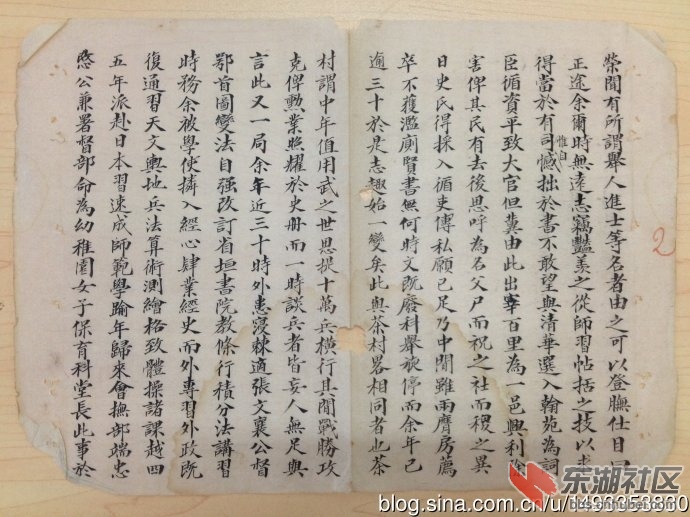 榮間有所謂舉人進士等名者由之可以登膴仕目
正途余爾時無遠志竊豔羨之從師習帖括之技以求
得當於有司憾惟自拙於書不敢望與清華選入翰苑為詞
臣循資平致大官但冀由此出宰百里為一邑興利除
害俾其民有去後思呼為名父尸而祝之社而稷之異
日史氏得採入循吏傳私願已足乃中間雖兩膺房薦
卒不獲濫廁賢書無何時文既廢科舉旋停而余年已
逾三十於是志趣始一變矣此與茶村畧相同者也茶
村謂中年值用武之世思提十萬兵橫行其間戰勝攻
克俾勲業照耀於史冊而一時談兵者皆妄人無足與
言此又一局余年近三十時外患寖棘適張文襄公督
鄂首圖變法自强改訂省垣書院教條行積分法講習
時務余被學使撰入經心肄業經史而外專習外政既
復通習天文輿地兵法算術測繪格致體操諸課越四
五年派赴日本習速成師範學踰年歸來會撫部端忠
愍公兼署督部命為幼稚園女子保育科堂長此事於
2
东湖社区
blog.sina.com.cn/u/1496353830